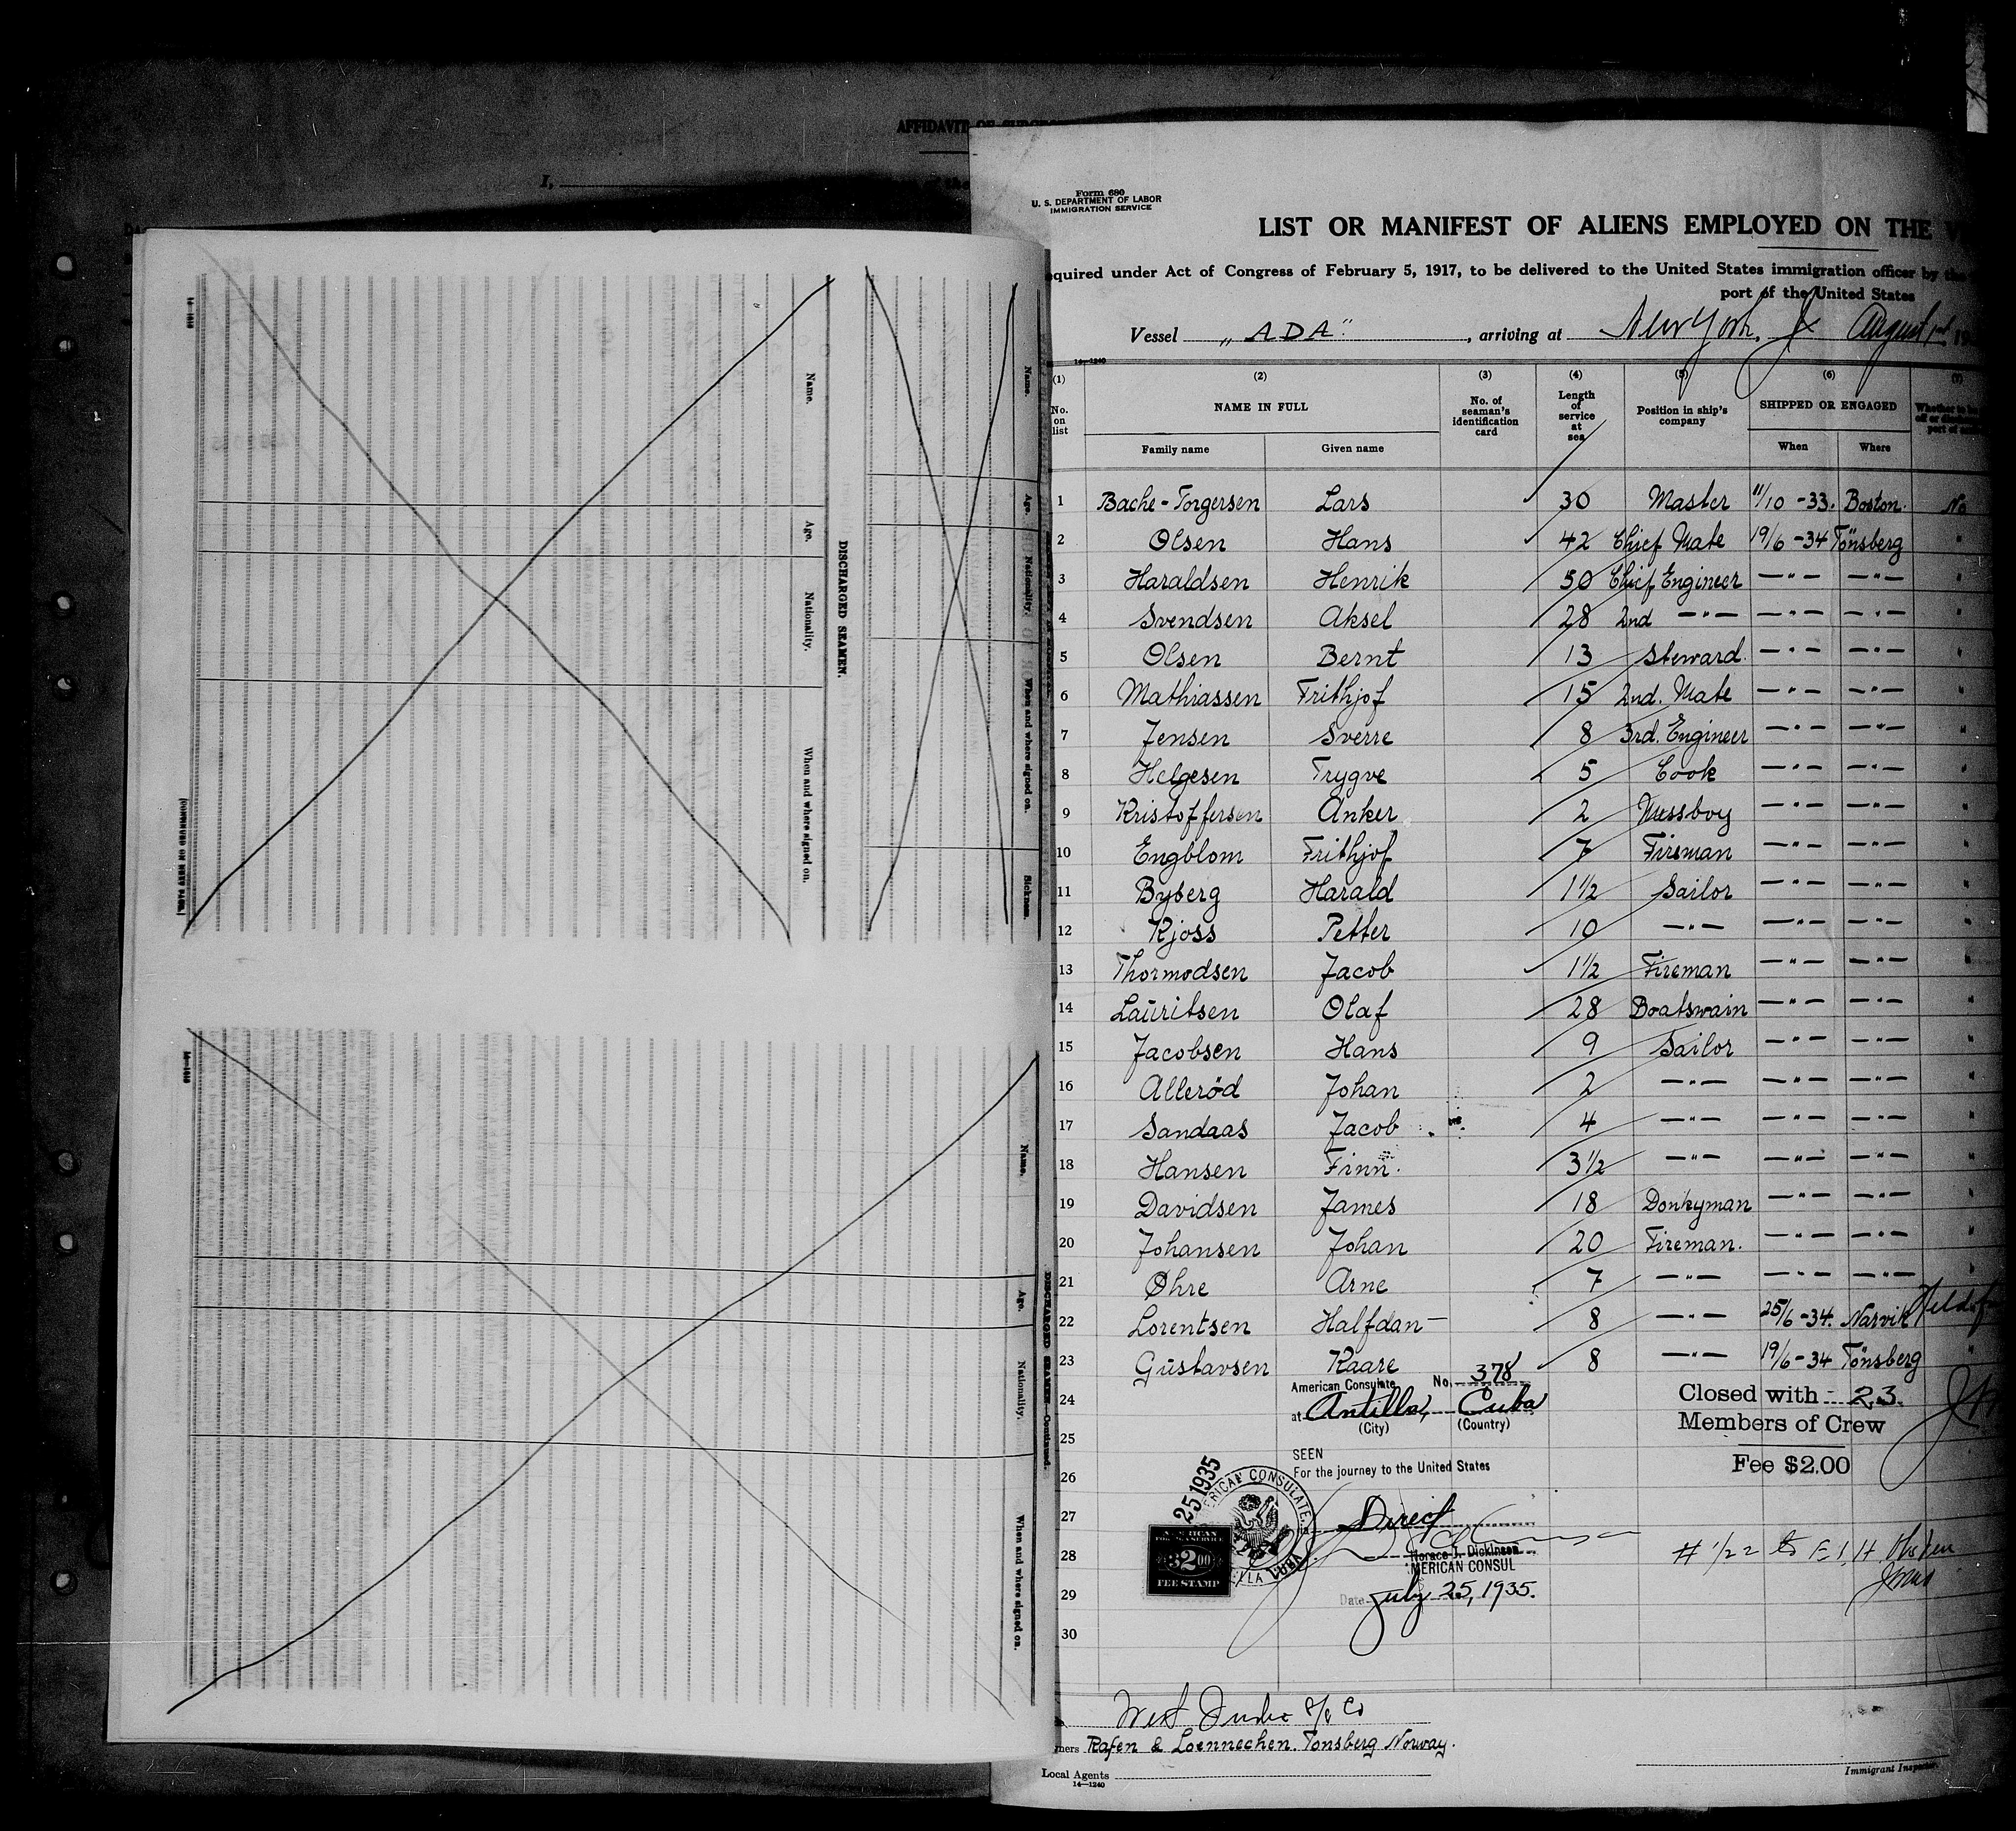 AFFIDAVIT OF SURGEON
I,
Form 680
U. S. DEPARTMENT OF LABOR
IMMIGRATION SERVICE
LIST OR MANIFEST OF ALIENS EMPLOYED ON THE
quired under Act of Congress of February 5, 1917, to be delivered to the United States immigration officer by the
port of the United States
Vessel „ADA", arriving at New York, August 1st, 19
14—1240
(1) (2) (3) (4) (5) (6) (7)
No. on list NAME IN FULL No. of seaman's identification card Length of service at sea Position in ship's company SHIPPED OR ENGAGED
Family name Given name When Where
1 Bache-Torgersen Lars 30 Master 11/10 -33. Boston. No
2 Olsen Hans 42 Chief Mate 19/6 -34 Tönsberg "
3 Haraldsen Henrik 50 Chief Engineer —"— —"— "
4 Svendsen Aksel 28 2nd —"— —"— —"— "
5 Olsen Bernt 13 Steward. —"— —"— "
6 Mathiassen Frithjof 15 2nd. Mate —"— —"— "
7 Jensen Sverre 8 3rd. Engineer —"— —"— "
8 Helgesen Trygve 5 Cook —"— —"— "
9 Kristoffersen Anker 2 Messboy —"— —"— "
10 Engblom Frithjof 7 Fireman —"— —"— "
11 Byberg Harald 1½ Sailor —"— —"— "
12 Kjoss Petter 10 —"— —"— —"— "
13 Thormodsen Jacob 1½ Fireman —"— —"— "
14 Lauritsen Olaf 28 Boatswain —"— —"— "
15 Jacobsen Hans 9 Sailor —"— —"— "
16 Alleröd Johan 2 —"— —"— —"— "
17 Sandaas Jacob 4 —"— —"— —"— "
18 Hansen Finn. 3½ —"— —"— —"— "
19 Davidsen James 18 Donkyman —"— —"— "
20 Johansen Johan 20 Fireman. —"— —"— "
21 Øhre Arne 7 —"— —"— —"— "
22 Lorentsen Halfdan— 8 —"— 25/6 -34. Narvik
23 Gustavsen Kaare 8 —"— 19/6 -34 Tönsberg "
24
25
26
27
28
29
30
American Consulate No. 378
at Antilla, Cuba
(City) (Country)
Closed with 23
Members of Crew
Fee $2.00
SEEN
For the journey to the United States
25 1935
AMERICAN CONSULATE
Direct
Horace J. Dickinson
AMERICAN CONSUL
AMERICAN
FOREIGN SERVICE
$2.00
FEE STAMP
Date July 25, 1935.
West India S/S Co
ners Rafen & Loennechen. Tonsberg Norway.
Local Agents
14—1240
Immigrant Inspector.
Name. Age. Nationality. When and where signed on. Sickness.
DISCHARGED SEAMEN.
Name. Age. Nationality. When and where signed on.
14—1240
DISCHARGED SEAMEN—Continued.
Name. Age. Nationality. When and where signed on.